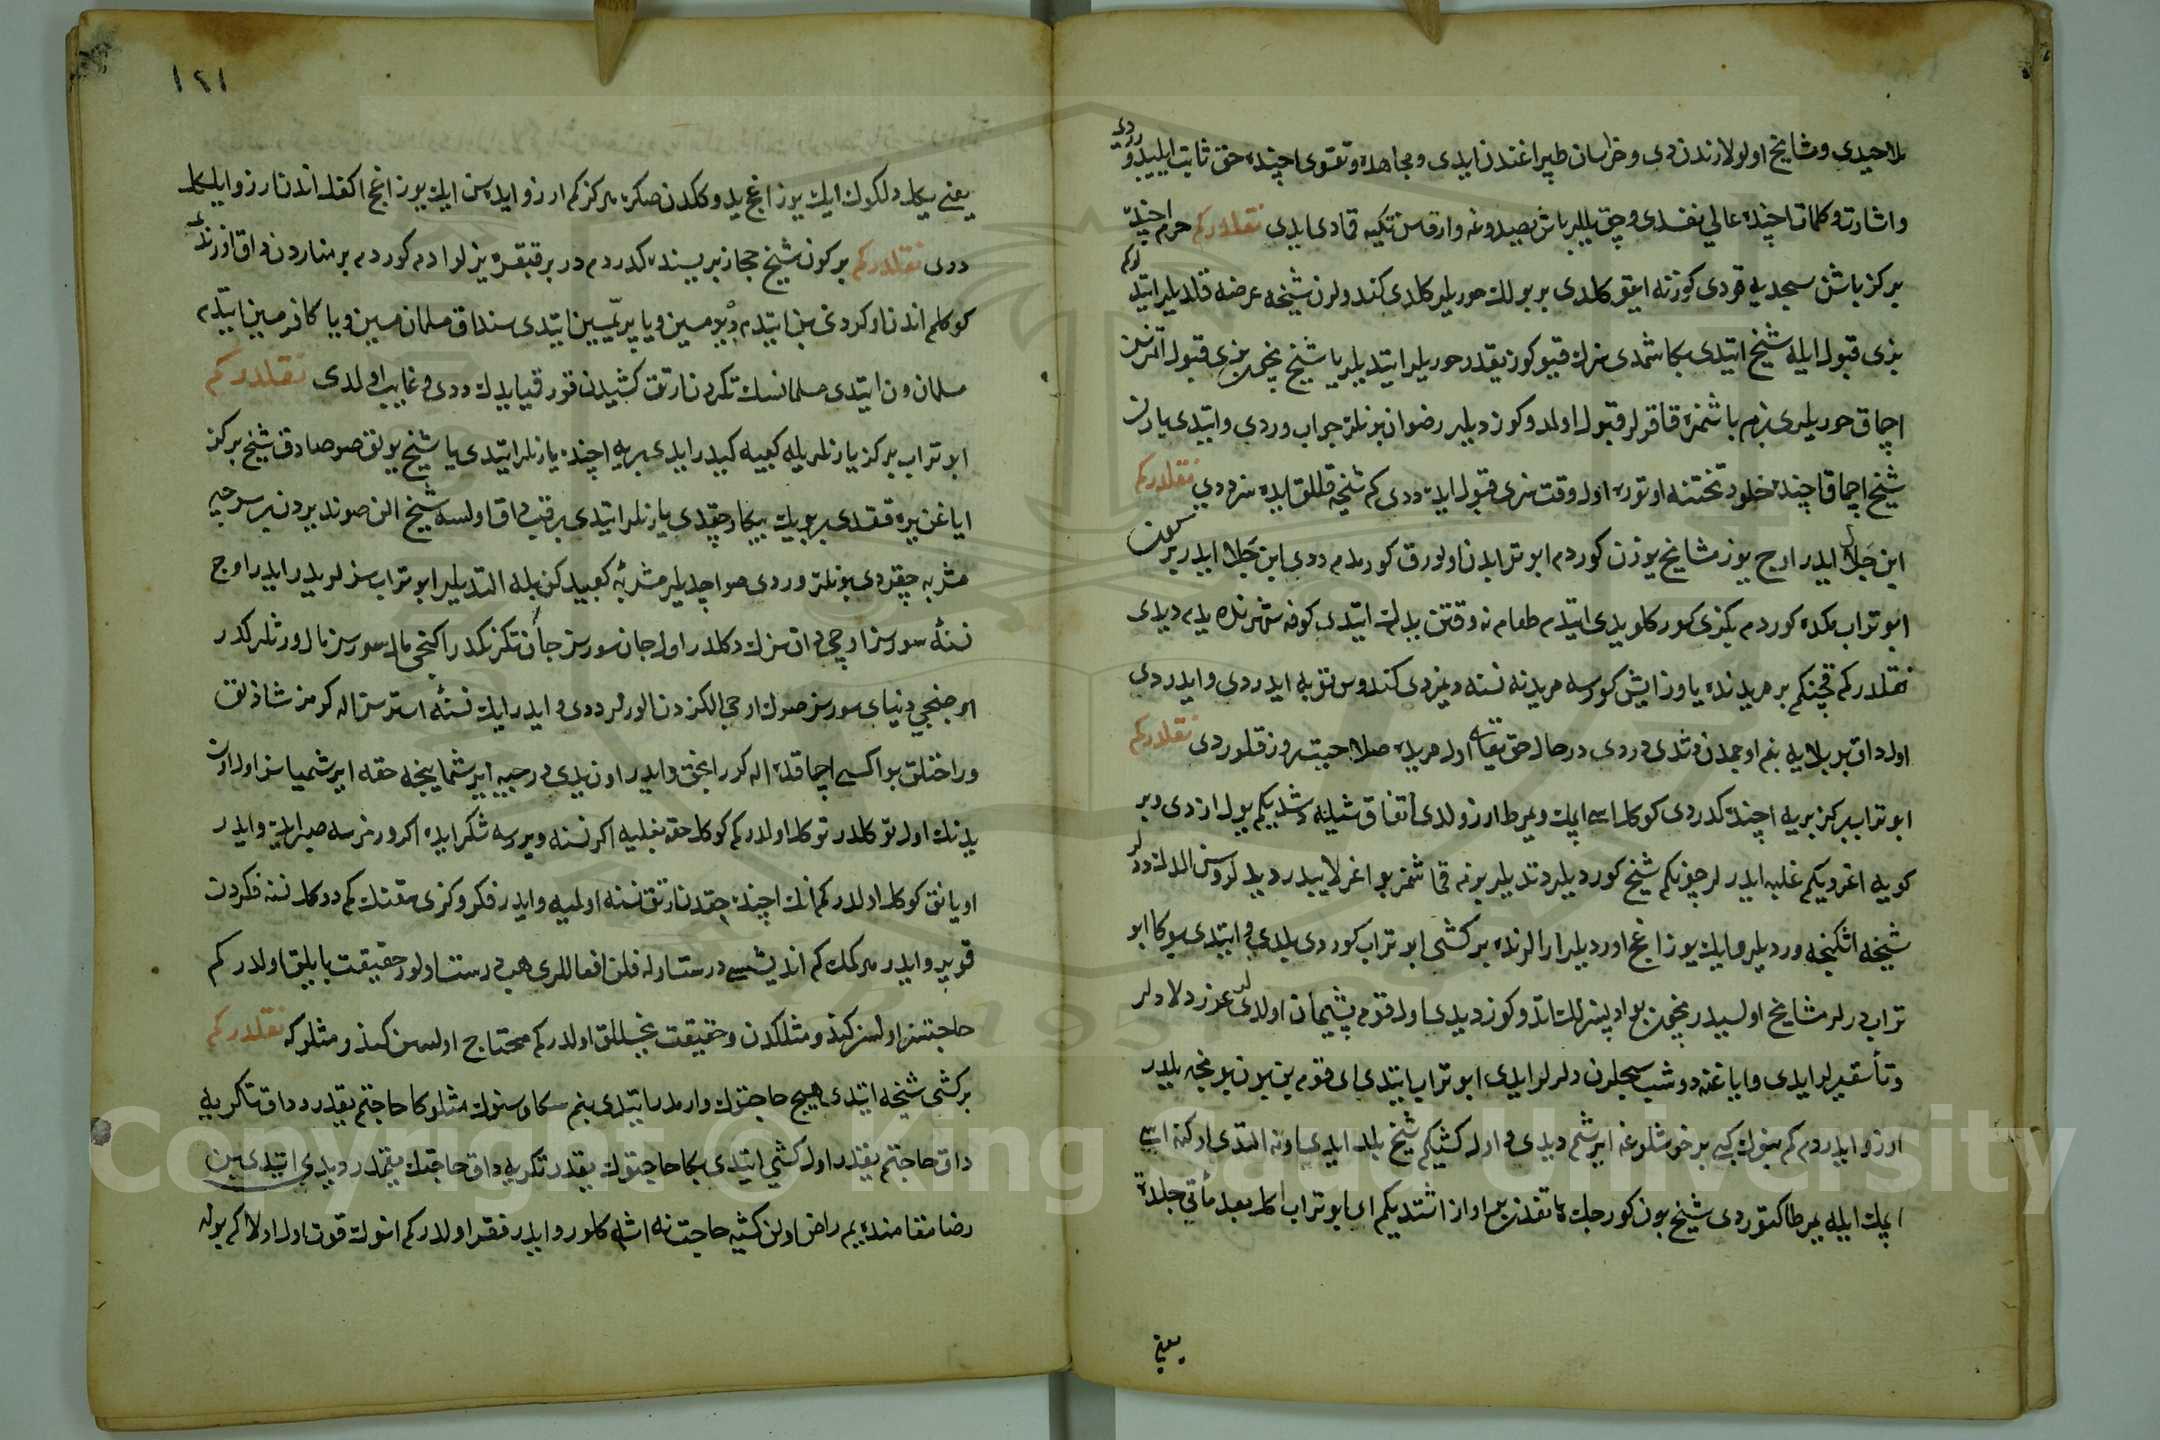 ملاحیدی و مشایخ اولولارندن دی و خراسان طپراغندن ایدی و مجاهده و تقوی اچنده حق ثابت ایلیبدوردی
و اشارت و کلمات اچنده عالی نفسدی و چق یللر باش بصیدوغه و ارقاسن تکیه قمادی ایدی نقلدرکم حرم اچنده
برکز باشن سجدیه قودی کوزنه ایقو کلدی بر بولك حوریلر کلدی کندولرن شیخه عرضه قلدیلر ایتدیلرکم
بزی قبول ایله شیخ ایتدی بکا شمدی سزك قیوکوز یقدر حوریلر ایتدیلر یا شیخ نچون بزی قبول اتمزسن
اچماق حوریلری بزم باشمزه قاقرلر قبول اولدوکوز دیلر رضوان بونلره جواب وردی و ایتدی یارن
شیخ اچماق اچنده خلود تختنه اوتوره اول وقت سزی قبول ایده ددی کم شیخه قللق ایده سز ددی نقلدرکم
ابن جلا ایدر اوچ یوز مشایخ یوزن کوردم ابو ترابدن اولورق کورمدم ددی ابن جلا ایدر برکون
ابو تراب مکده کوردم بکزی کور کلویدی ایتدم طعام نه وقتن یدك ایتدی کوفه شهرنده یدم دیدی
نقلدرکم قچنکم بر مریدنده یاوز ایش کورسه مریدنه نسنه دیمزدی کندوسی توبه ایدردی و ایدردی
اول داق بو بلایه بنم اوجمدن دشدی دردی درحال حق تعالی اول مریده صلاحیت روز قلوردی نقلدرکم
ابو تراب برکز بریه اچنده کدردی کوکلی اسی اپمك و یمرطا ارزولدی اتفاق شیله دشدیکم یول ازدی و بر
کویه اغرویکم غلبه ایدرلر چونکم شیخ کوردیلر دتدیلر بونه قماشمز بو اغرلاییبدر دیدیلر
شیخه اشکنجه وردیلر و ایك یوز اغج اوردیلر ارالرنده بر کشی ابو تراب کوردی بلدی و ایتدی بوکا ابو
تراب درلر مشایخ اولسیدر نچون بو ادبسزلك اتدوکوز دیدی اول قوم پشیمان اولدیلر عذر دلادلر
و تأسفلر ایدی و ایاغنه دوشب سچلرن دلرلر ایدی ابو تراب ایتدی ای قوم بن بون بونجه یلدر
ارزو ایدردم کم بنوك کبی بر خوشلوغه ایرشم دیدی و اول کشیکم شیخ بلد ایدی اونه التدی اوکنه اسی
اپمك ایله یمرطا کتوردی شیخ بون کورجك هاتفدن بر اواز اشتدیکم ای ابو تراب کل بعد مأتی جلدة
یعنی
١٢١
یعنی ییکل دلکوك ایك یوز اغج یدوککدن صکره هر کز کم ارزو ایده سن ایك یوز اغج اکفلی اندن ارزو ایلیکل
ددی نقلدرکم برکون شیخ حجاز بریسنده کدردم در بر قبقره یزلو ادم کوردم بر منارەدن داق اوزندی
کوکلم اندن اورکردی بن ایتدم دیومیسین و یا پریمیسین ایتدی سنداق مسلمان مسین و یا کافرمیسین ایتدم
مسلمان ون ایتدی مسلمانسك تکریدن ارتق کشیدن قورقیایدك ددی و غایب اولدی نقلدرکم
ابو تراب برکز یارنلریله کعبیه کیدر ایدی بریه اچنده یارنلر ایتدی یا شیخ یونق صو صادق شیخ برکز
ایاغن یره ققدی بر بویك بیکار چقدی یارنلر ایتدی بر قب داق اولسه شیخ الن صوند یردن بر سرچه
مشربه چقردی بونلره وردی صو اچدیلر مشربه کعبیه دکن بله التدیلر ابو تراب سزلر یدر ایدر اوچ
نسنه سورسز اوچی ده ان سزك دکلدر اول جان سورسز جان تکزنکدر اکنجی مال سورسز مال ورثلرکدر
اوجنجی دنیای سورسز صوك اوجی الکزدن الورلر ددی و ایدر ایك نسنه استرسز اله کرمز شاذلق
و راحتلق بو اکسی اچماقده اله کور انجق و ایدر اون یدی درجیه ایرشماینجه حقه ایرشمیاسز اول اون
یدنك اول توکلدر توکل اولدرکم کوکل حقه بغلیه اکر نسنه ویرسه شکر ایده اکر ورمزسه صبر ایده و ایدر
اویانق کوکل اولدرکم انك اچنده حقدن ارتق نسنه اولمیه و ایدر فکروکزی سقنك کم ددکلی نسنه فکردن
قوپر و ایدر هر کمك کم اندیشسی درست اوله قلن افعاللری هب درست اولور حقیقت بایلق اولدرکم
حاجتسز اولسز کندو مثلکدن و حقیقت یخسللق اولدرکم محتاج اولسن کندو مثلوکه نقلدرکم
بر کشی شیخه ایتدی هیچ حاجتوك وارمدر ایتدی بنم سکا و سنوك مثلوکا حاجتم یقدر دداق تاکریه
داق حاجتم یقدر اول کشی ایتدی بکا حاجتوك یقدر تکریه داق حاجتك یقمدر دیدی ایتدی بن
رضا مقامنده یم راض اولن کشیه حاجت نه اشه کلور و ایدر فقر اولدرکم انوك قوت اول اولاکم بوله